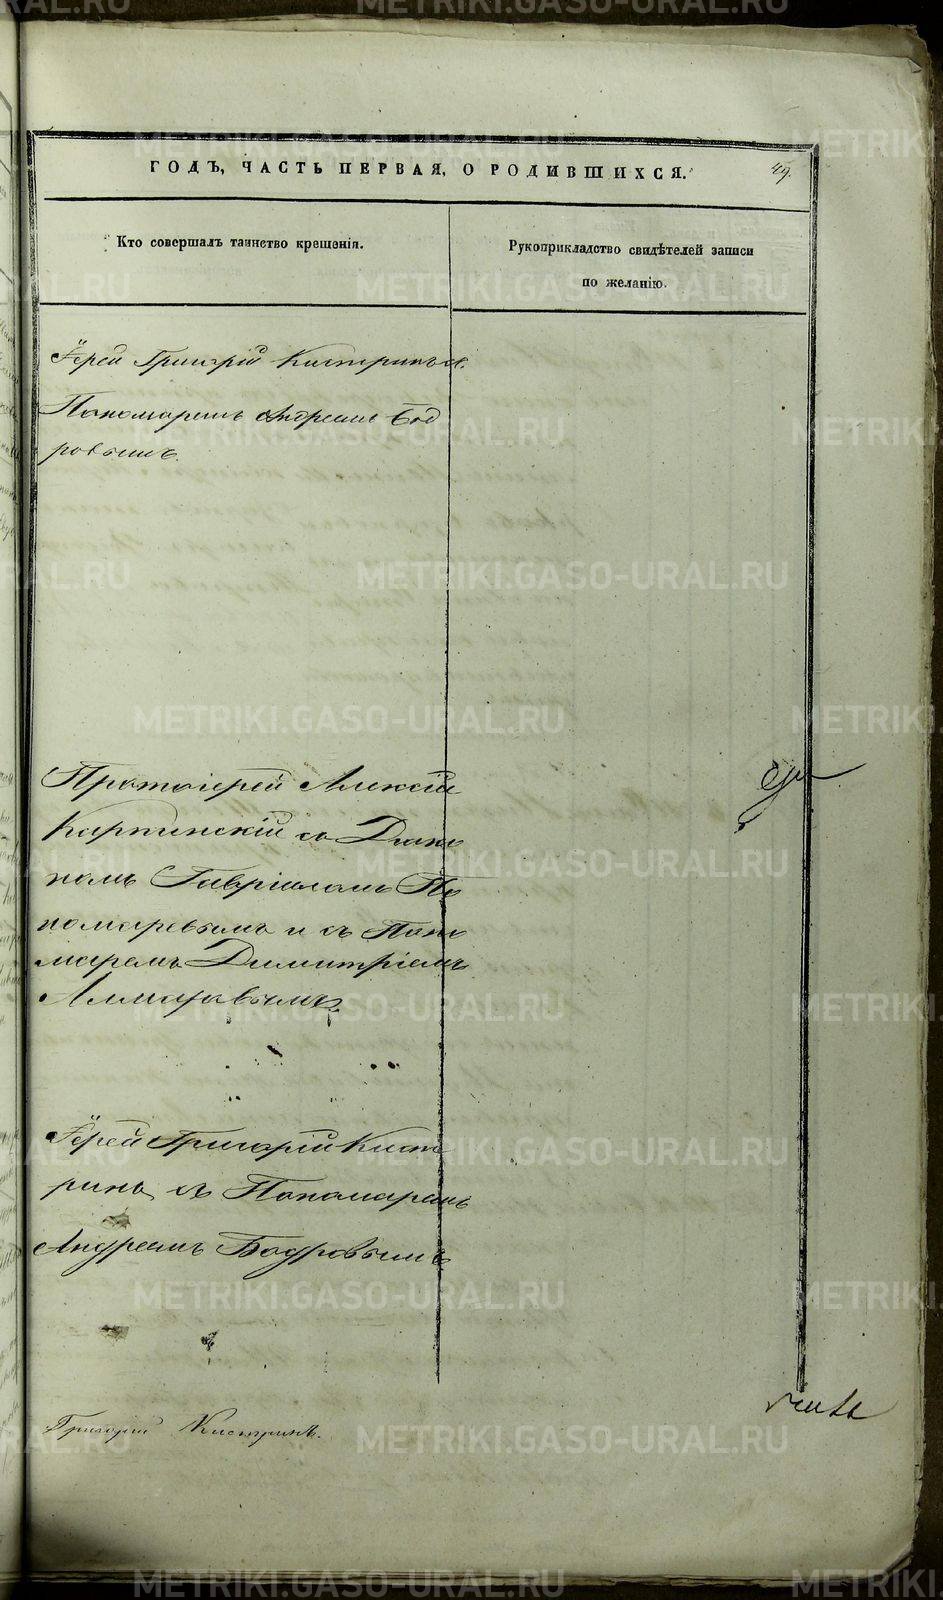 ГОДЪ, ЧАСТЬ ПЕРВАЯ, О РОДИВШИХСЯ.
49.
Кто совершалъ таинство крещенія.
Рукоприкладство свидѣтелей записи
по желанію.
Іерей Григорій Кистринъ съ
Пономаремъ Андреемъ Бод
ровымъ.
Протоіерей Алексій
Карпинскій съ Діако
номъ Гавріиломъ По
номаревымъ и съ Поно
маремъ Димитріемъ
Іерей Григорій Кист
ринъ съ Пономаремъ
Андреемъ Бодровымъ
Григорій Кистринъ.
METRIKI.GASO-URAL.RU